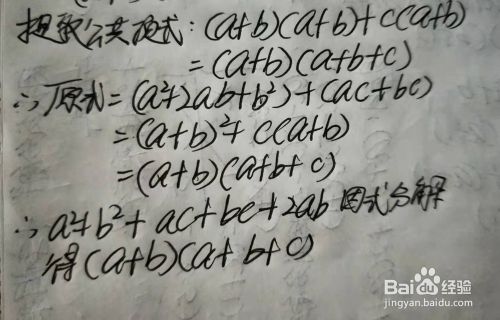 提取公共项式:(a+b)(a+b)+c(a+b)
=(a+b)(a+b+c)
∴原式=(a²+2ab+b²)+(ac+bc)
=(a+b)²+c(a+b)
=(a+b)(a+b+c)
∴a²+b²+ac+bc+2ab 因式分解
得(a+b)(a+b+c)
Baidu经验
jingyan.baidu.com